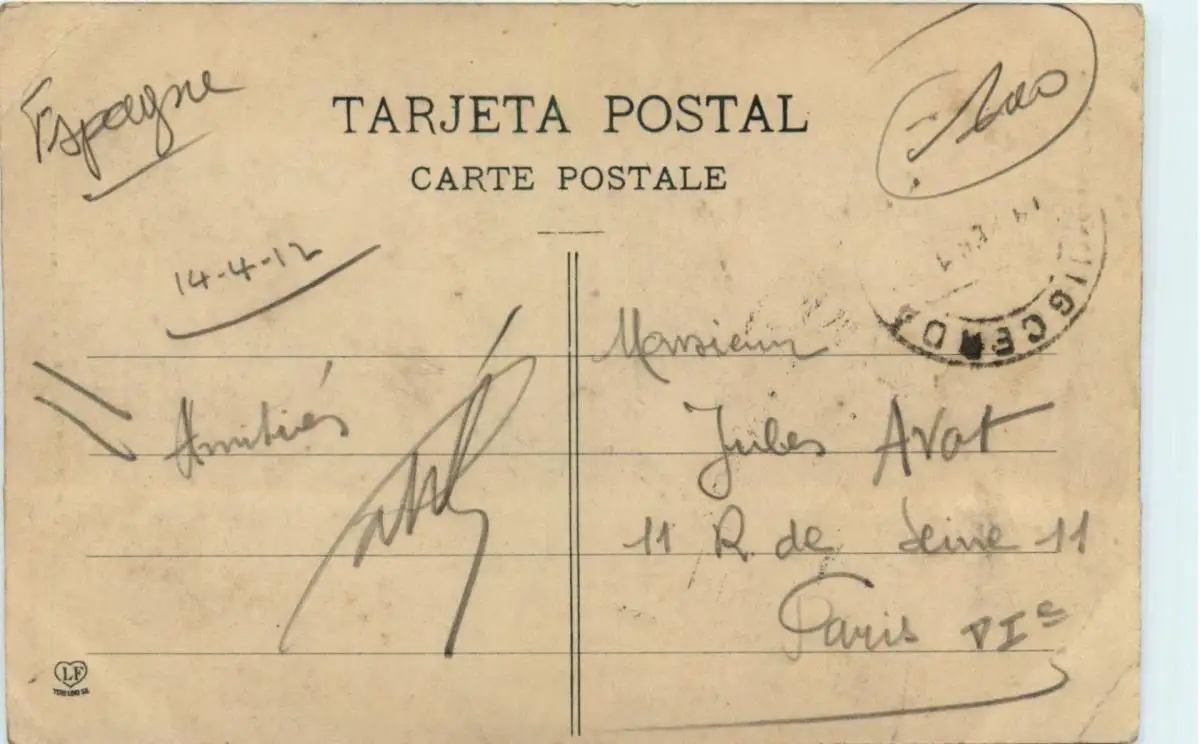 Espagne
TARJETA POSTAL
CARTE POSTALE
14-4-12
Amitiés
Monsieur
Jules Avot
11 R de Seine 11
Paris VIe
LF